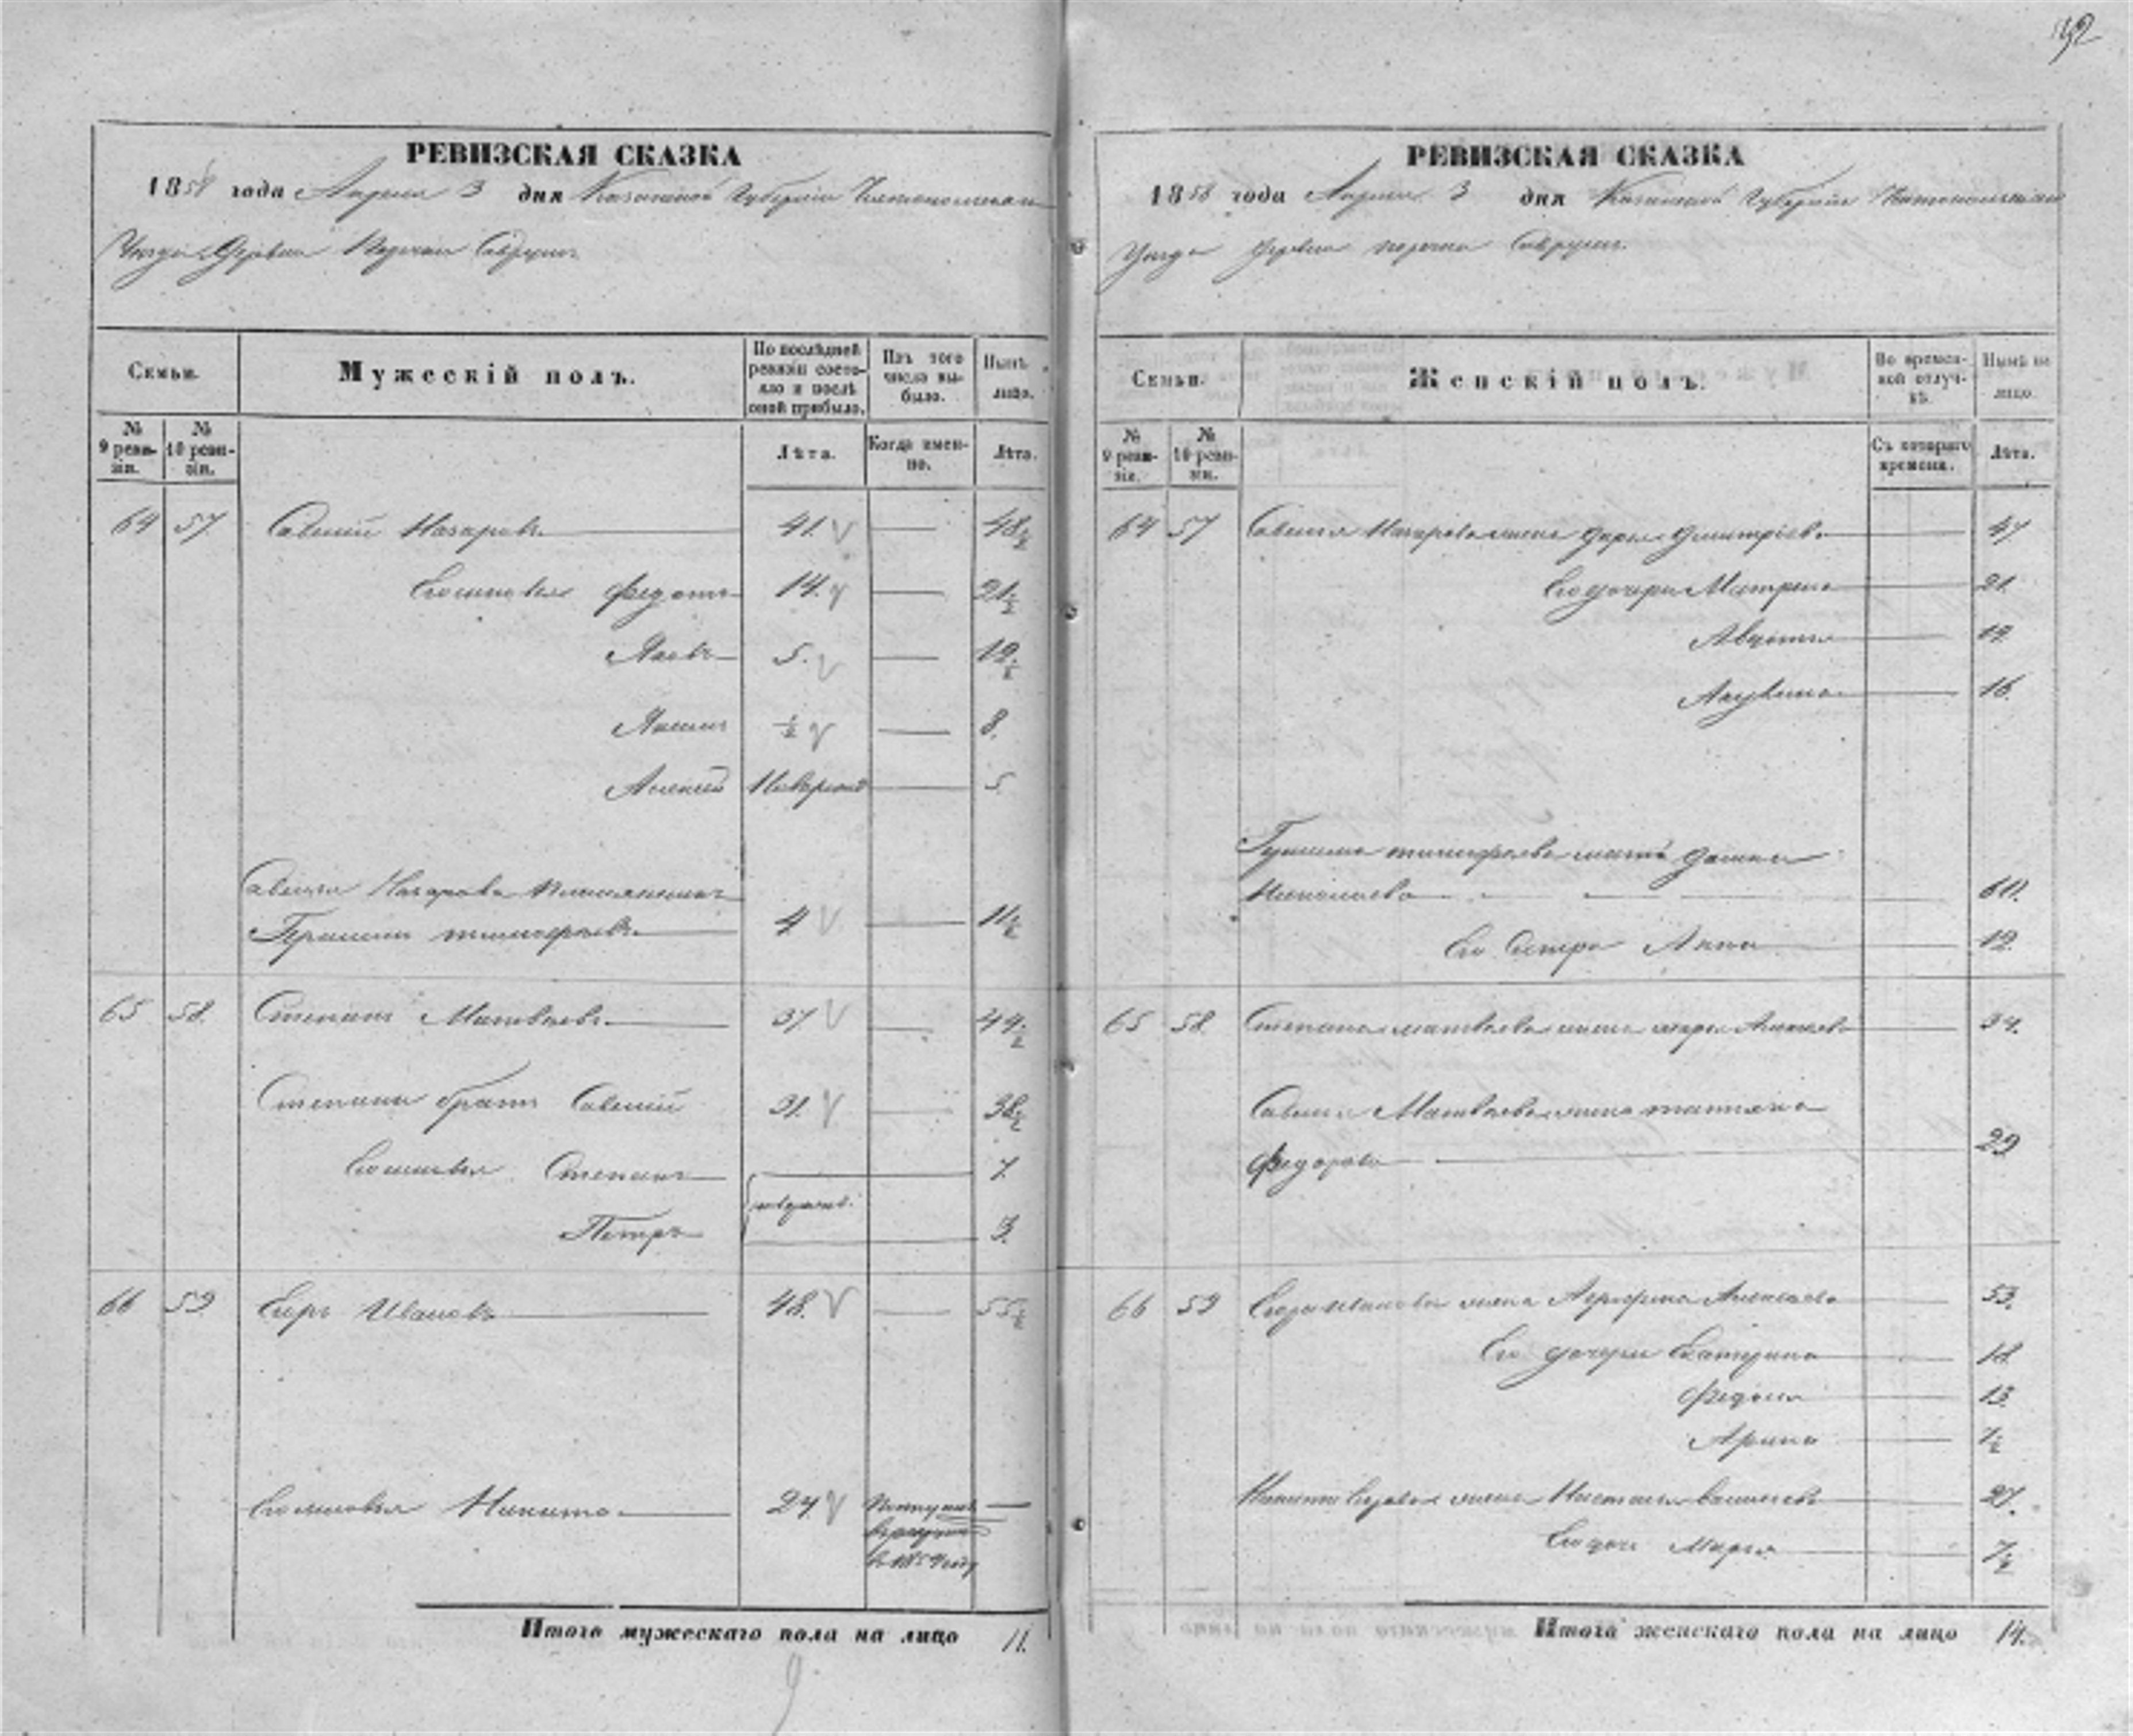 92
РЕВИЗСКАЯ СКАЗКА
1858 года Апреля 3 дня Казанской Губерніи Чистопольскаго
Уезда Деревни
Семьи.
Мужескій полъ.
По последней ревизіи состояло и после оной прибыло.
Изъ того числа выбыло.
Ныне лицо.
№ 9 ревизіи.
№ 10 ревизіи.
Лѣта.
Когда именно.
Лѣта.
64 57 Савелій Назаровъ 41. 48½
Его сыновья Федотъ 14. 21½
Яковъ 5. 12½
½ 8.
Алексей Новорожд 5
Савелья Назарова племянникъ
Тимофеевъ 4 11½
65 58. Степанъ Матвѣевъ 37 44½
Степана братъ Савелій 31. 38½
Его сыновья Степанъ 7.
новорожд.
Петръ 3.
66 59 Егоръ Ивановъ 48. 55½
Его сыновья Никита 24
въ рекруты
Итого мужескаго пола на лицо 11.
РЕВИЗСКАЯ СКАЗКА
1858 года Апреля 3 дня Казанской Губерніи Чистопольскаго
Уезда Деревни
Семьи.
Женскій полъ.
Во временной отлучкѣ.
Нынѣ на лицо.
№ 9 ревизіи.
№ 10 ревизіи.
Съ котораго времени.
Лѣта.
64 57 Савелья Назарова жена Дарья Дмитріева 47
Его дочери Матрена 21.
Авдотья 19.
Акулина 16.
Тимофеева мать
Николаева 60.
Его Сестра Анна 12.
65 58. Степана Матвѣева жена 34.
Савелья Матвѣева жена Татьяна
Федорова 29
66 59 Егора Иванова жена Агрофена Алексеева 53.
Его дочери Екатерина 18
Федосья 13.
Арина 7½
Никиты Егорова жена Настасья Васильева 27.
Его дочь Марья 7½
Итого женскаго пола на лицо 14.